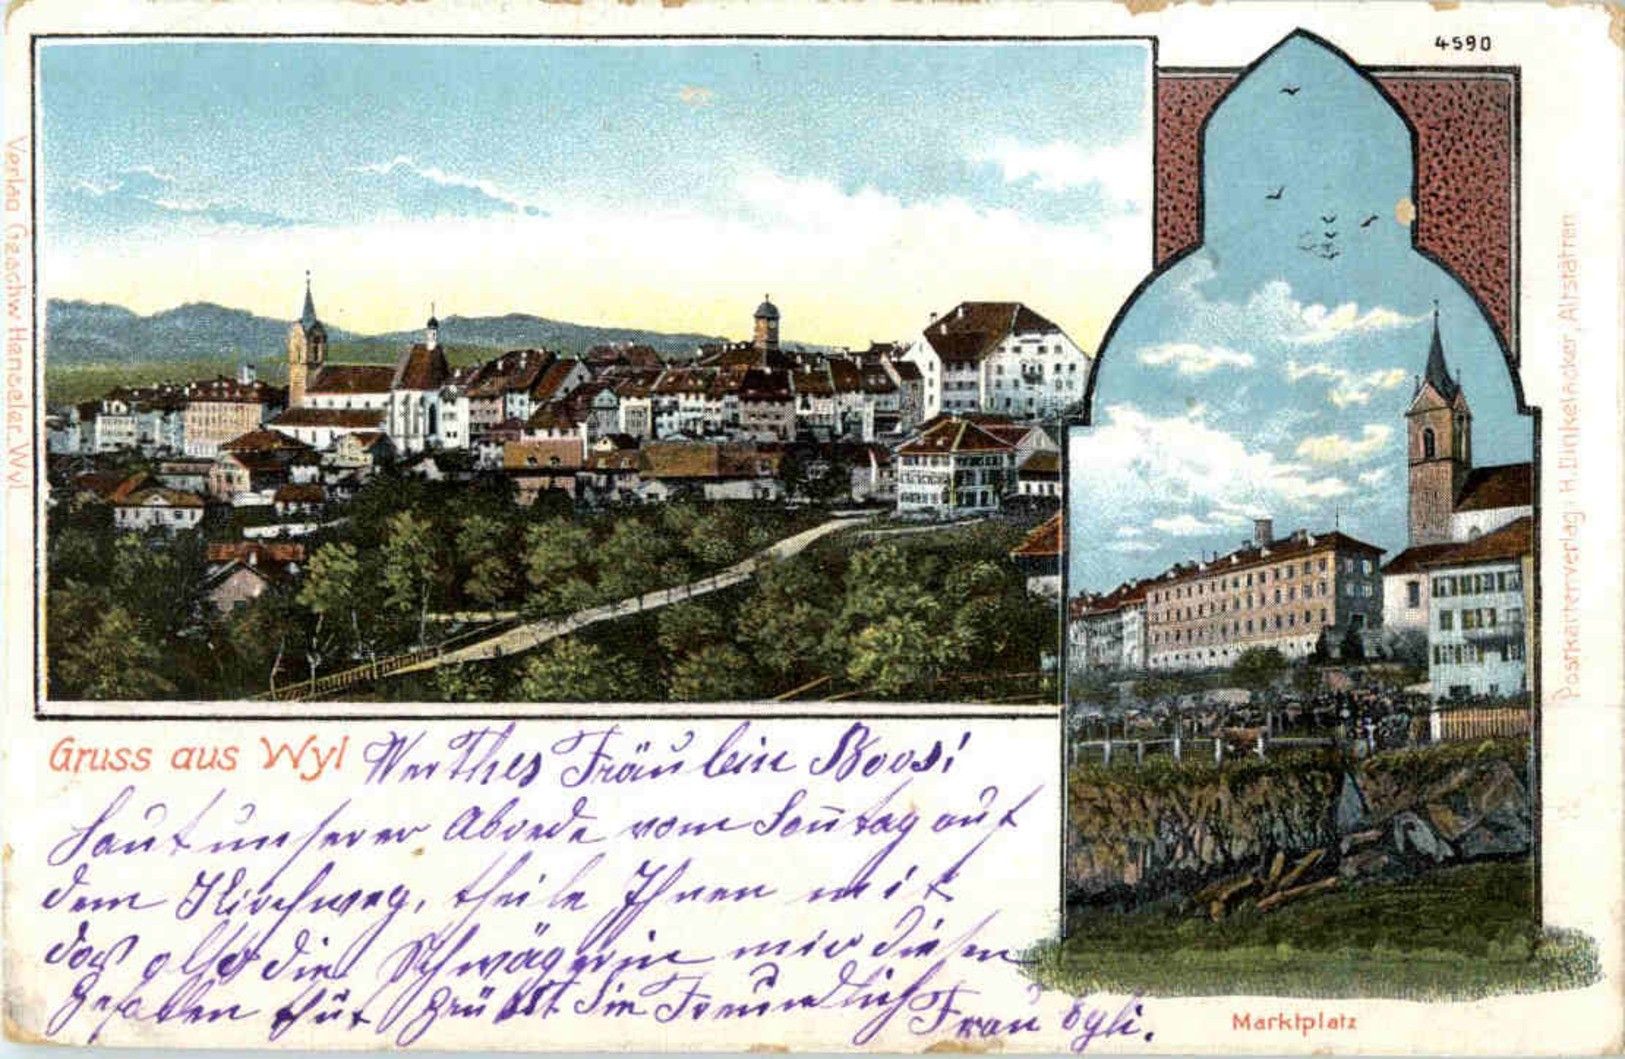 4590
Verlag Geschw. Hangeler, Wyl
Postkartenverlag H. Dinkelacker, Altstätten
Gruss aus Wyl
Werthes Fräulein Boos!
Laut unserer Abrede vom Son̄tag auf
dem Kirchweg, theile Ihnen mit
das die Schwägerin mir diesen
Gefallen thut Grüßt Sie Freundlich
Frau Egli.
Marktplatz